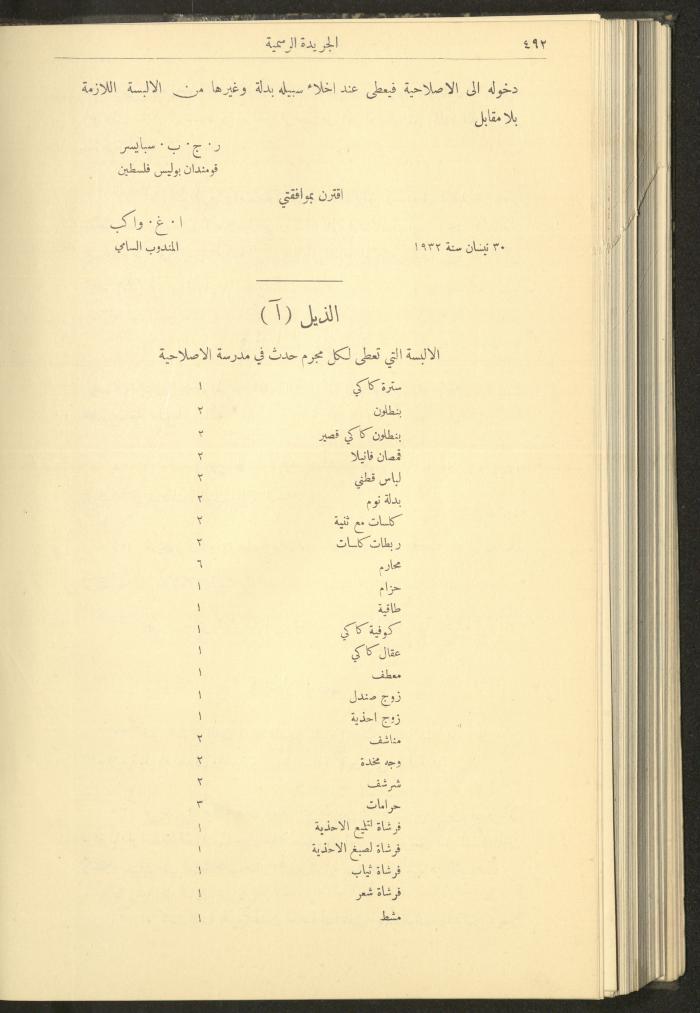 ٤٩٢ الجريدة الرسمية
دخوله الى الاصلاحية فيعطى عند اخلاء سبيله بدلة وغيرها من الالبسة اللازمة
بلا مقابل
ر٠ ج٠ ب٠ سبايسر
قومندان بوليس فلسطين
اقترن بموافقتي
ا٠ غ٠ واكب
٣٠ نيسان سنة ١٩٣٢ المندوب السامي
الذيل (آ)
الالبسة التي تعطى لكل مجرم حدث في مدرسة الاصلاحية
سترة كاكي ١
بنطلون ٢
بنطلون كاكي قصير ٢
قمصان فانيلا ٢
لباس قطني ٢
بدلة نوم ٢
كلسات مع ثنية ٢
ربطات كلسات ٢
محارم ٦
حزام ١
طاقية ١
كوفية كاكي ١
عقال كاكي ١
معطف ١
زوج صندل ١
زوج احذية ١
مناشف ٢
وجه مخدة ٢
شرشف ٢
حرامات ٣
فرشاة لتلميع الاحذية ١
فرشاة لصبغ الاحذية ١
فرشاة ثياب ١
فرشاة شعر ١
مشط ١